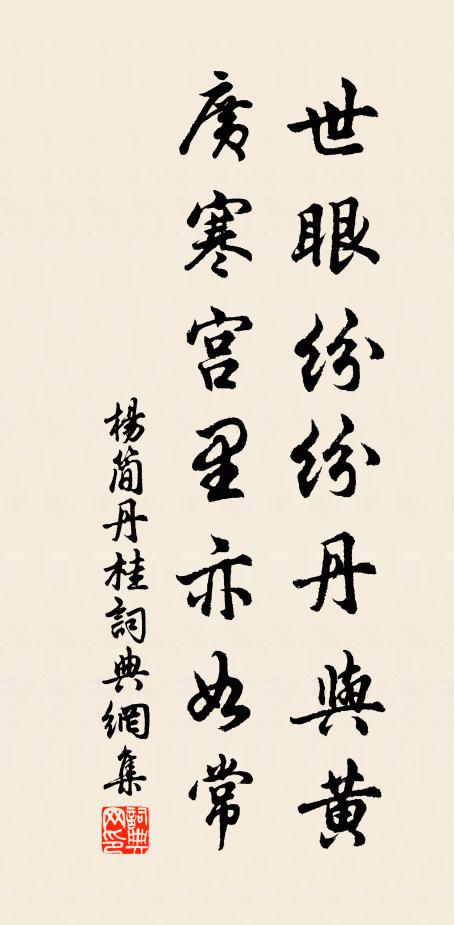 世眼紛紛丹與黃
廣寒宮里亦如常
楊簡丹桂詞典網集
詞典
网印